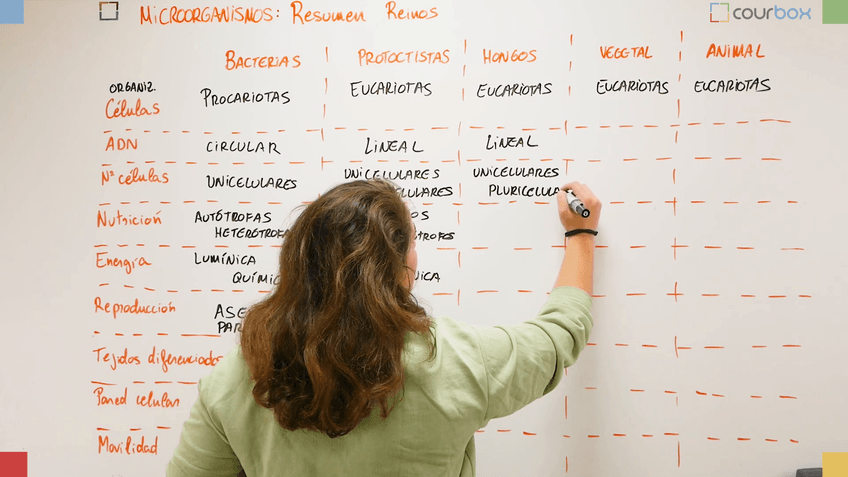 MICROORGANISMOS: Resumen Reinos
courbox
BACTERIAS PROTOCTISTAS HONGOS VEGETAL ANIMAL
ORGANIZ.
Células PROCARIOTAS EUCARIOTAS EUCARIOTAS EUCARIOTAS EUCARIOTAS
ADN CIRCULAR LINEAL LINEAL
Nº células UNICELULARES UNICELULARES UNICELULARES
PLURICELULA
Nutrición AUTÓTROFAS
HETERÓTROFA
Energía LUMÍNICA
QUÍMIC
Reproducción ASE
PAR
Tejidos diferenciado
Pared celular
Movilidad